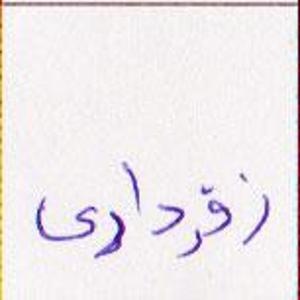 زقرداری